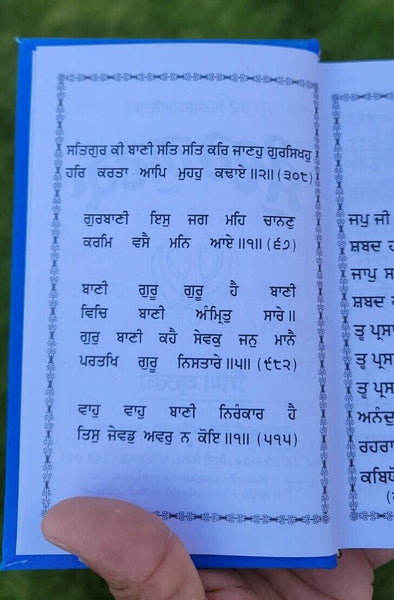 ਸਤਿਗੁਰ ਕੀ ਬਾਣੀ ਸਤਿ ਸਤਿ ਕਰਿ ਜਾਣਹੁ ਗੁਰਸਿਖਹੁ
ਹਰਿ ਕਰਤਾ ਆਪਿ ਮੁਹਹੁ ਕਢਾਏ॥੨॥ (੩੦੮)
ਗੁਰਬਾਣੀ ਇਸੁ ਜਗ ਮਹਿ ਚਾਨਣੁ
ਕਰਮਿ ਵਸੈ ਮਨਿ ਆਏ॥੧॥ (੬੭)
ਬਾਣੀ ਗੁਰੂ ਗੁਰੂ ਹੈ ਬਾਣੀ
ਵਿਚਿ ਬਾਣੀ ਅੰਮ੍ਰਿਤੁ ਸਾਰੇ॥
ਗੁਰੁ ਬਾਣੀ ਕਹੈ ਸੇਵਕੁ ਜਨੁ ਮਾਨੈ
ਪਰਤਖਿ ਗੁਰੂ ਨਿਸਤਾਰੇ॥੫॥ (੯੮੨)
ਵਾਹੁ ਵਾਹੁ ਬਾਣੀ ਨਿਰੰਕਾਰ ਹੈ
ਤਿਸੁ ਜੇਵਡੁ ਅਵਰੁ ਨ ਕੋਇ॥੧॥ (੫੧੫)
ਜਪੁ ਜੀ
ਸ਼ਬਦ
ਜਾਪੁ
ਸ਼ਬਦ
ਤ੍ਵ
ਤ੍ਵ
ਤ੍ਵ
ਅਨੰਦੁ
ਰਹਰਾ